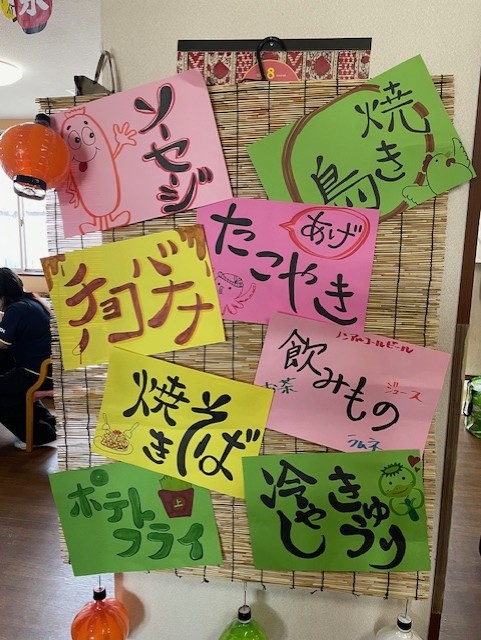 氷
8
ソーセージ
焼き
鳥
あげ
たこやき
チョコバナナ
ノンアルコールビール
飲みもの
お茶
ジュース
ラムネ
焼き
そば
ポテト
フライ
冷やし
きゅうり